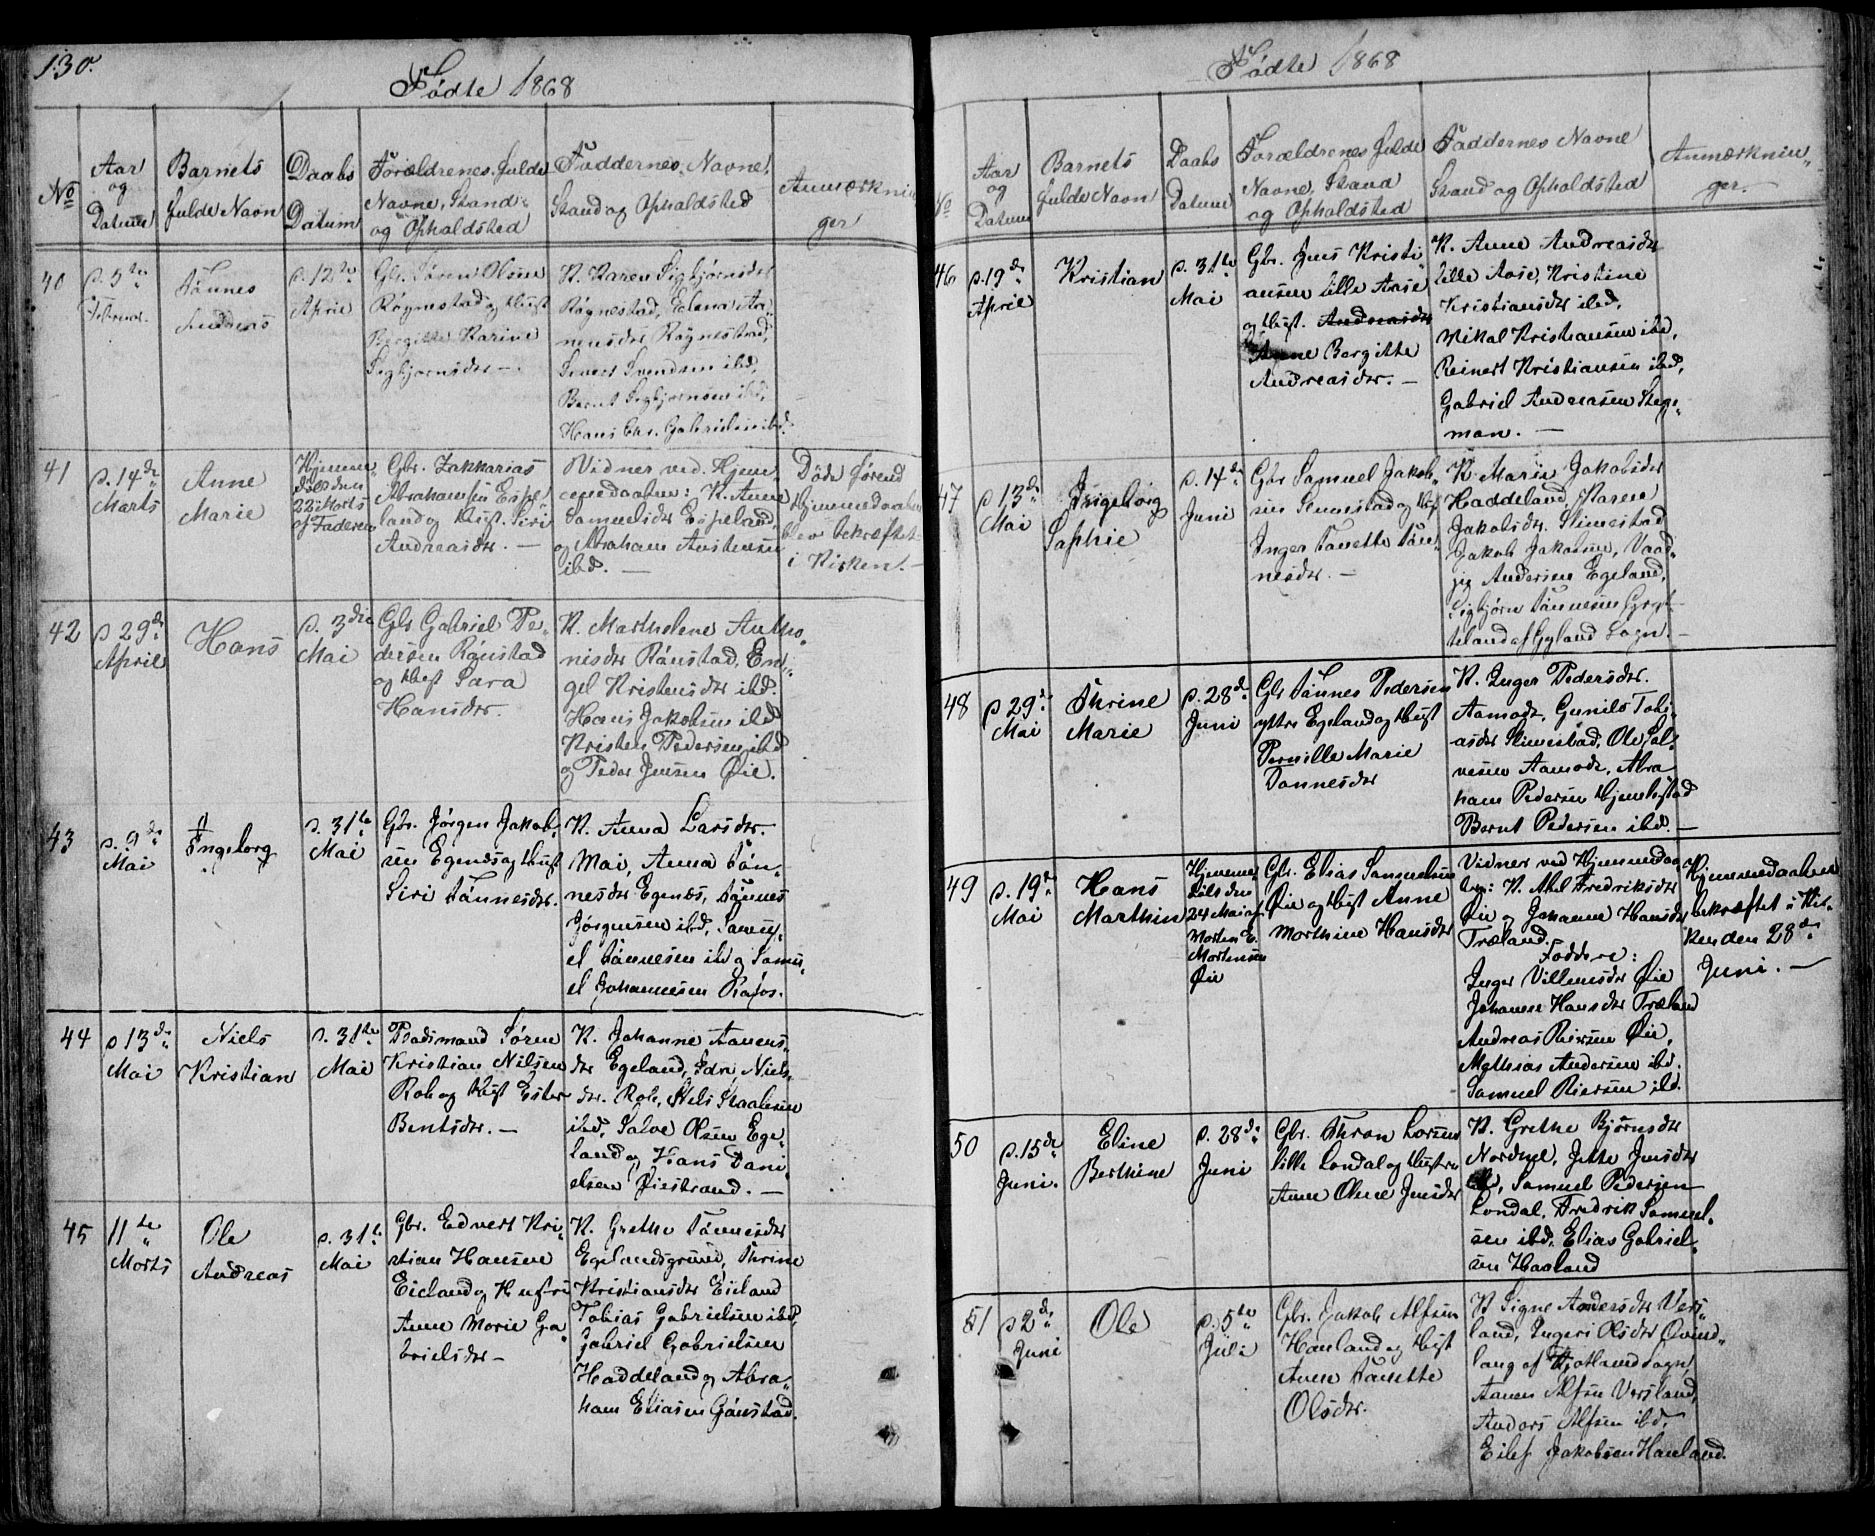 130.
Fødte 1868
No
Aar og Datum
Barnets fulde Navn
Daabs Datum
Forældrenes fulde Navne, Stand og Opholdsted
Faddernes Navne, Stand og Opholdsted
Anmærkninger
40
d. 5te Februar
Tønnes Andreas
d. 12te April
Gbr. Søren Olsen
Røgnestad og Hust
Bergitte Karine
Sigbjørnsdtr. —
K. Karen Sigbjørnsdtr
Røgnestad, Elena An-
nensdtr Røgnestad,
Sivert Svendsen ibd,
Bernt Sigbjørnsen ibd,
Hans Chr. Gabrielsen ibd.
41
d. 14de Marts
Anne Marie
Hjemme
døbt den
22 Marts
af Faderen
Gbr. Zakkarias
Abrahamsen Espe-
land og Hust. Siri
Andreasdtr. —
Vidner ved Hjem-
medaaben: K. Anne
Samuelsdtr Espeland,
og Abraham Austensen
ibd. —
Døde førend
Hjemmedaaben
blev bekræftet
i Kirken. —
42
d 29de April
Hans
d. 3die Mai
Gbr Gabriel Pe-
dersen Rønstad
og Hust Sara
Hansdtr.
K. Marthelene Antho-
nisdtr Rønstad, En-
gel Kristensdtr ibd.
Hans Jakobsen ibd
Kristen Pedersen ibd
og Peder Jensen Øie.
43
d. 9de Mai
Ingeborg
d. 31te Mai
Gbr. Jørgen Jakob-
sen Egenæs og Hust
Siri Tønnesdtr.
K. Anna Larsdtr.
Moi, Anna Tøn-
nesdtr Egenæs, Tønnes
Jørgensen ibd, Samu-
el Tønnesen ibd og Samu-
el Johannesen Rafos.
44
d 13de Mai
Niels Kristian
d. 31te Mai
Baadsmand Søren
Kristian Nilsen
Rob og Hust Ester
Bentsdtr. —
K. Johanne Aanens-
dtr Egeland, Niels-
dtr. Rob, Niels Staalesen
ibd, Salve Olsen Ege-
land og Hans Dani-
elsen Øiestrand. —
45
11te Marts
Ole Andreas
d. 31te Mai
Gbr. Edvert Kri-
stian Hansen
Eieland og Hustru
Anne Marie Ga-
brielsdtr —
K. Grethe Tønnesdtr
Egelandsgrund, Thrine
Kristiansdtr Eieland
Tobias Gabrielsen ibd,
Gabriel Gabrielsen
Haddeland og Abra-
ham Eliasen Gønstad.
Fødte 1868
No
Aar og Datum
Barnets fulde Navn
Daabs Datum
Forældrenes fulde Navne, Stand og Opholdsted
Faddernes Navne Stand og Opholdsted
Anmærkninger.
46
d. 19de April
Kristian
d. 31te Mai
Gbr. Jens Kristi-
ansen lille Aase
og Hust. Andreasdtr
Anne Bergitte
Andreasdtr. —
K. Anne Andreasdtr
lille Aase, Kristine
Kristiansdtr ibd,
Mikal Kristiansen ibd,
Reinert Kristiansen ibd,
Gabriel Andreasen Stege-
mon. —
47
d 13de Mai
Ingeborg Sophie
d. 14de Juni
Gbr Samuel Jakob-
sen Slimestad og Hust
Inger Tonette Tøn-
nesdtr. —
K. Maria Jakobsdtr
Haddeland, Karen
Jakobsdtr. Slimestad
Jakob Jakobsen,
Andersen Egeland,
Sigbjørn Tønnesen
af Gyland Sogn. —
48
d 29de Mai
Thrine Marie
d. 28de Juni
Gbr Tønnes Pedersen
yttre Egeland og Hust
Pernille Marie
Tonnesdtr
K. Inger Pedersdtr.
Aamodt, Gunild Tobi-
asdtr Slimestad, Ole Sal-
vesen Aamodt, Abra-
ham Pedersen Hjemlestad
Bernt Pedersen ibd. —
49
d. 19de Mai
Hans Marthin
Hjemme
døbt den
24 Mai af
Morten E.
Mortensen
Øie
Gbr. Elias Samuelsen
Øie og Hust Anne
Marthine Hansdtr
Vidner ved Hjemmedaa-
ben: K. Abel Fredriksdtr
Øie og Johanne Hansdtr
Træland.
Faddere:
Inger Villumsdtr Øie
Johanne Hansdtr Træland
Andreas Reiersen Øie,
Mathias Andersen ibd.
Samuel Reiersen ibd.
Hjemmedaaben
bekræftet i Kir-
ken den 28de
Juni. —
50
d. 15de Juni.
Eline Berthine
d. 28de Juni
Gbr. Thron Larsen
lille Londal og Hustru
Anne Oline Jensdtr
K. Grethe Bjørnsdtr
Jette Jensdtr
ibd, Samuel Pedersen
Londal, Fredrik Samuel-
sen ibd, Elias Gabriel-
sen Haaland
51
d 2de Juni
Ole
d. 5te Juli
Gbr. Jakob Alfsen
Hauland og Hust
Anne Tonette
Olsdtr.
K Signe Andersdtr Vers-
land, Ingeri Olsdtr Øvind-
lang af Hjotland Sogn,
Aanen Alfsen Versland,
Anders Alfsen ibd,
Eilef Jakobsen Hauland.